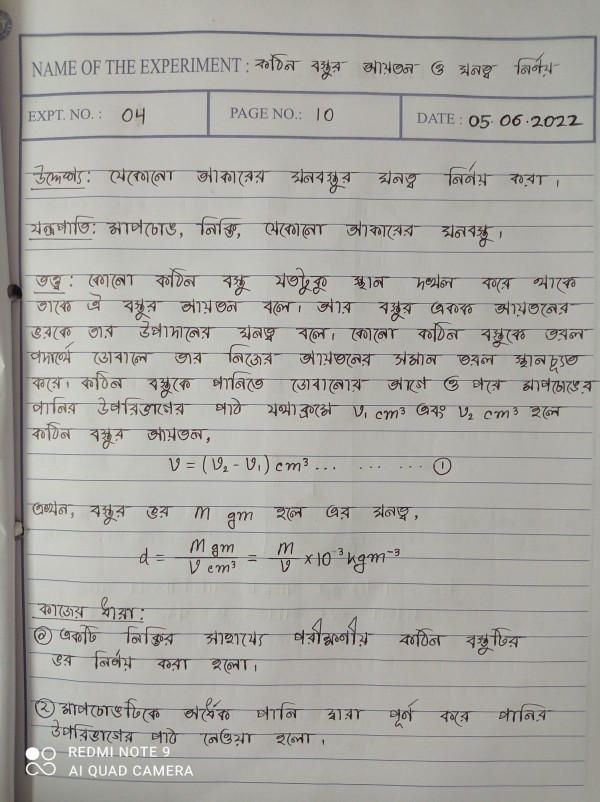 NAME OF THE EXPERIMENT : কঠিন বস্তুর আয়তন ও ঘনত্ব নির্ণয়
EXPT. NO. : 04 PAGE NO.: 10 DATE : 05.06.2022
উদ্দেশ্য: যেকোনো আকারের ঘনবস্তুর ঘনত্ব নির্ণয় করা।
যন্ত্রপাতি: মাপচোঙ, নিক্তি, যেকোনো আকারের ঘনবস্তু।
তত্ত্ব: কোনো কঠিন বস্তু যতটুকু স্থান দখল করে থাকে
তাকে ঐ বস্তুর আয়তন বলে। আর বস্তুর একক আয়তনের
ভরকে তার উপাদানের ঘনত্ব বলে। কোনো কঠিন বস্তুকে তরল
পদার্থে ডোবালে তার নিজের আয়তনের সমান তরল স্থানচ্যুত
করে। কঠিন বস্তুকে পানিতে ডোবানোর আগে ও পরে মাপচোঙের
পানির উপরিভাগের পাঠ যথাক্রমে V₁ cm³ এবং V₂ cm³ হলে
কঠিন বস্তুর আয়তন,
V = (V₂ - V₁) cm³ ... ... ... ... ①
এখন, বস্তুর ভর m gm হলে এর ঘনত্ব,
d = M gm / V cm³ = M / V × 10⁻³ kgm⁻³
কাজের ধারা:
① একটি নিক্তির সাহায্যে পরীক্ষণীয় কঠিন বস্তুটির
ভর নির্ণয় করা হলো।
② মাপচোঙটিকে অর্ধেক পানি দ্বারা পূর্ন করে পানির
উপরিভাগের পাঠ নেওয়া হলো।
REDMI NOTE 9
AI QUAD CAMERA